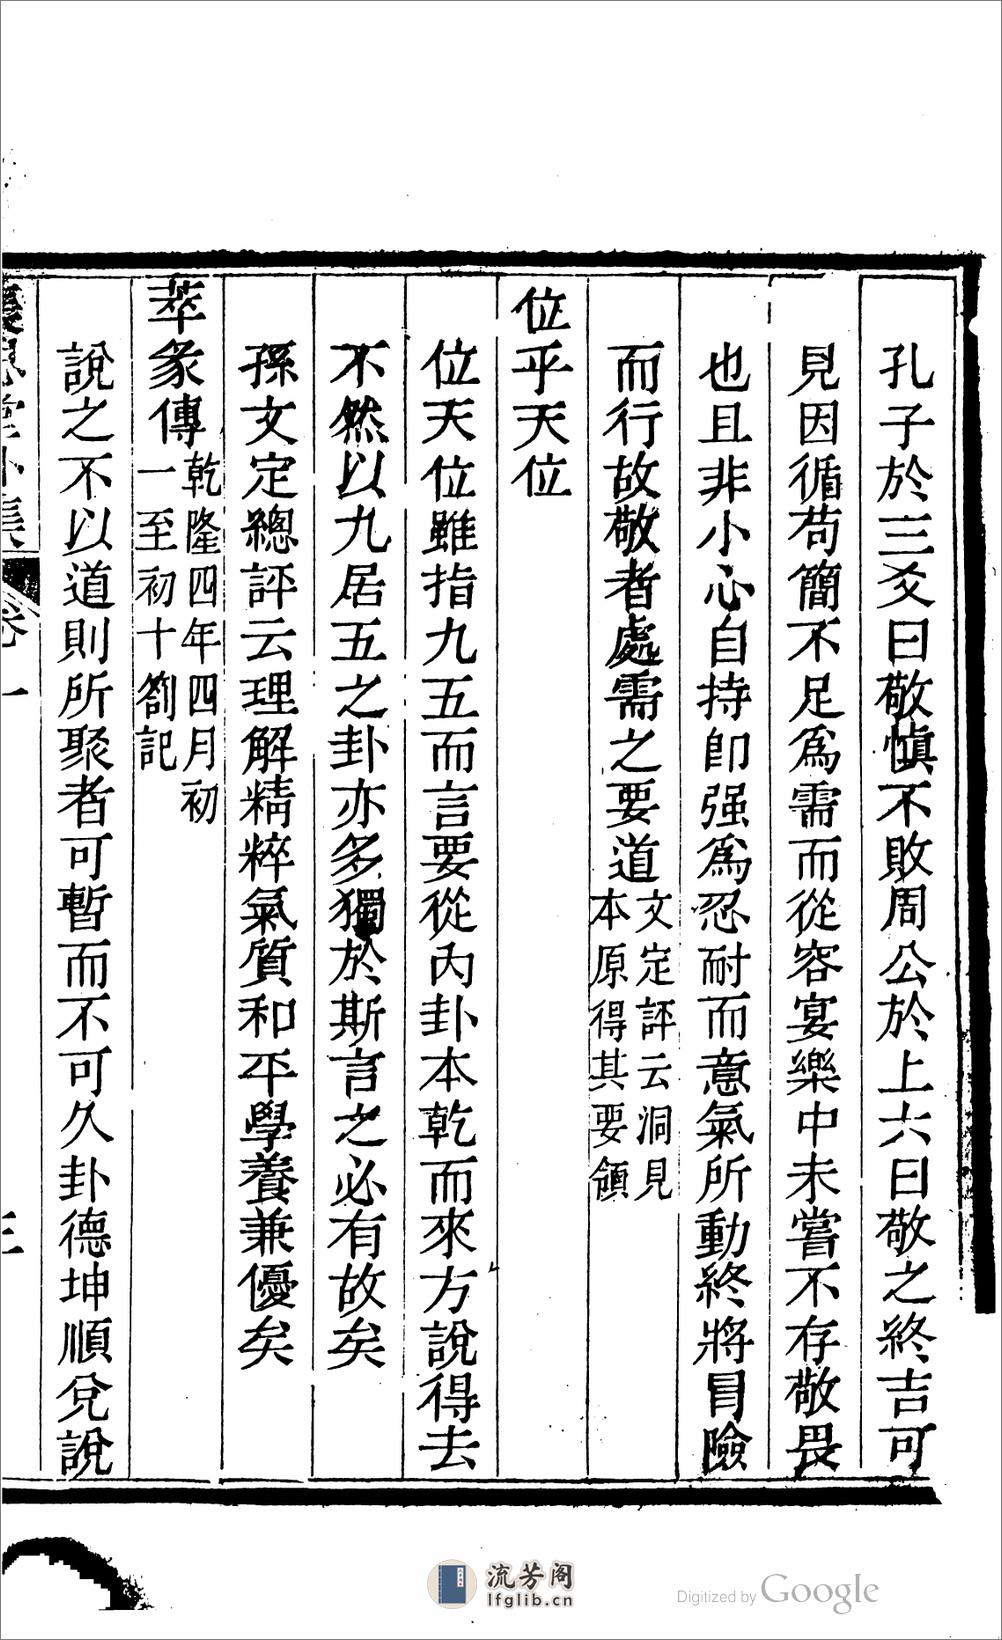 孔子於三爻曰敬愼不敗周公於上六曰敬之終吉可
見因循苟簡不足爲需而從容宴樂中未嘗不存敬畏
也且非小心自持卽强爲忍耐而意氣所動終將冒險
而行故敬者處需之要道文定評云洞見本原得其要領
位乎天位
位天位雖指九五而言要從內卦本乾而來方說得去
不然以九居五之卦亦多獨於斯言之必有故矣
孫文定總評云理解精粹氣質和平學養兼優矣
萃彖傳乾隆四年四月初一至初十劄記
說之不以道則所聚者可暫而不可久卦德坤順兌說
卷一
三
流芳阁
lfglib.cn
Digitized by Google